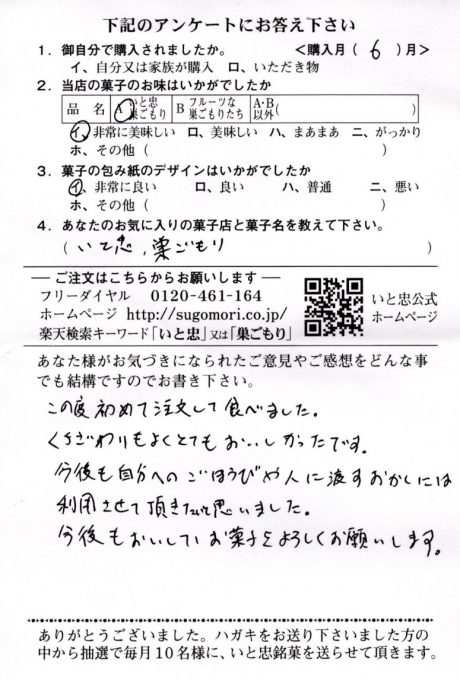 下記のアンケートにお答え下さい
1．御自分で購入されましたか。 ＜購入月（ 6 ）月＞
イ、自分又は家族が購入 ロ、いただき物
2．当店の菓子のお味はいかがでしたか
品 名 A いと忠巣ごもり B フルーツな巣ごもりたち A･B以外（ ）
イ、非常に美味しい ロ、美味しい ハ、まあまあ ニ、がっかり
ホ、その他（ ）
3．菓子の包み紙のデザインはいかがでしたか
イ、非常に良い ロ、良い ハ、普通 ニ、悪い
ホ、その他（ ）
4．あなたのお気に入りの菓子店と菓子名を教えて下さい。
（ いと忠、巣ごもり ）
― ご注文はこちらからお願いします ―
フリーダイヤル 0120-461-164
ホームページ http://sugomori.co.jp/
楽天検索キーワード「いと忠」又は「巣ごもり」
いと忠公式
ホームページ
あなた様がお気づきになられたご意見やご感想をどんな事
でも結構ですのでお書き下さい。
この度初めて注文して食べました。
くちざわりもよくとてもおいしかったです。
今後も自分へのごほうびや人に渡すおかしには
利用させて頂きたいと思いました。
今後もおいしいお菓子をよろしくお願いします。
ありがとうございました。ハガキをお送り下さいました方の
中から抽選で毎月10名様に、いと忠銘菓を送らせて頂きます。